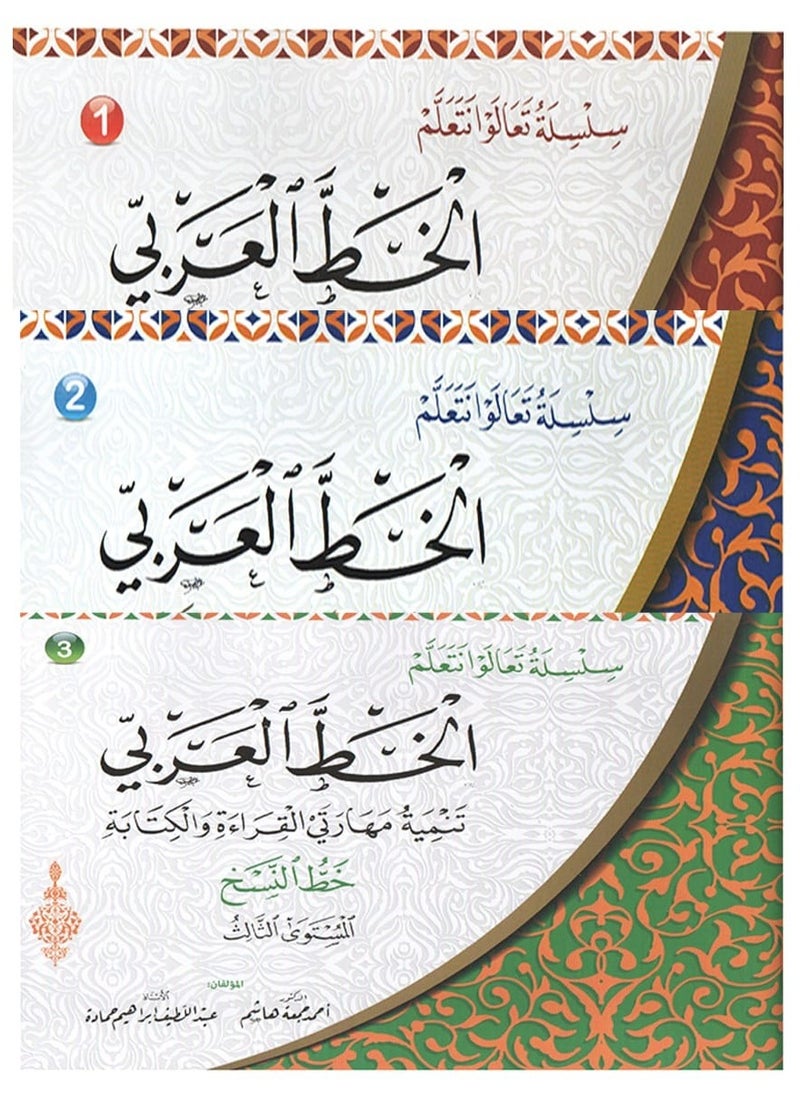 1
سِلْسِلَةُ تَعَالَوْا نَتَعَلَّمْ
الْخَطَّ الْعَرَبِيَّ
2
سِلْسِلَةُ تَعَالَوْا نَتَعَلَّمْ
الْخَطَّ الْعَرَبِيَّ
3
سِلْسِلَةُ تَعَالَوْا نَتَعَلَّمْ
الْخَطَّ الْعَرَبِيَّ
تَنْمِيَةُ مَهَارَتَيْ الْقِرَاءَةِ وَالْكِتَابَةِ
خَطُّ النَّسْخِ
الْمُسْتَوَى الثَّالِثُ
المؤلفان:
الدكتور الأستاذ
أحمد جمعة هاشم عبد اللطيف إبراهيم حمادة